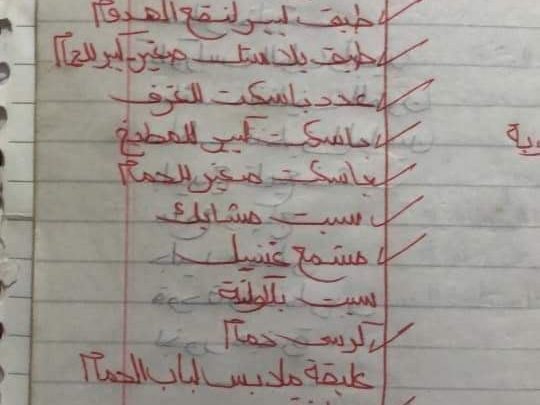 طبق كبير لنقع الهدوم
طبق بلاستك صغير كبير للحمام
عدد باسكت للغرف
باسكت كبير للمطبخ
باسكت صغير للحمام
سبت مشابك
مشمع غسيل
سبت بالونة
كرسى حمام
عليقة ملابس لباب الحمام